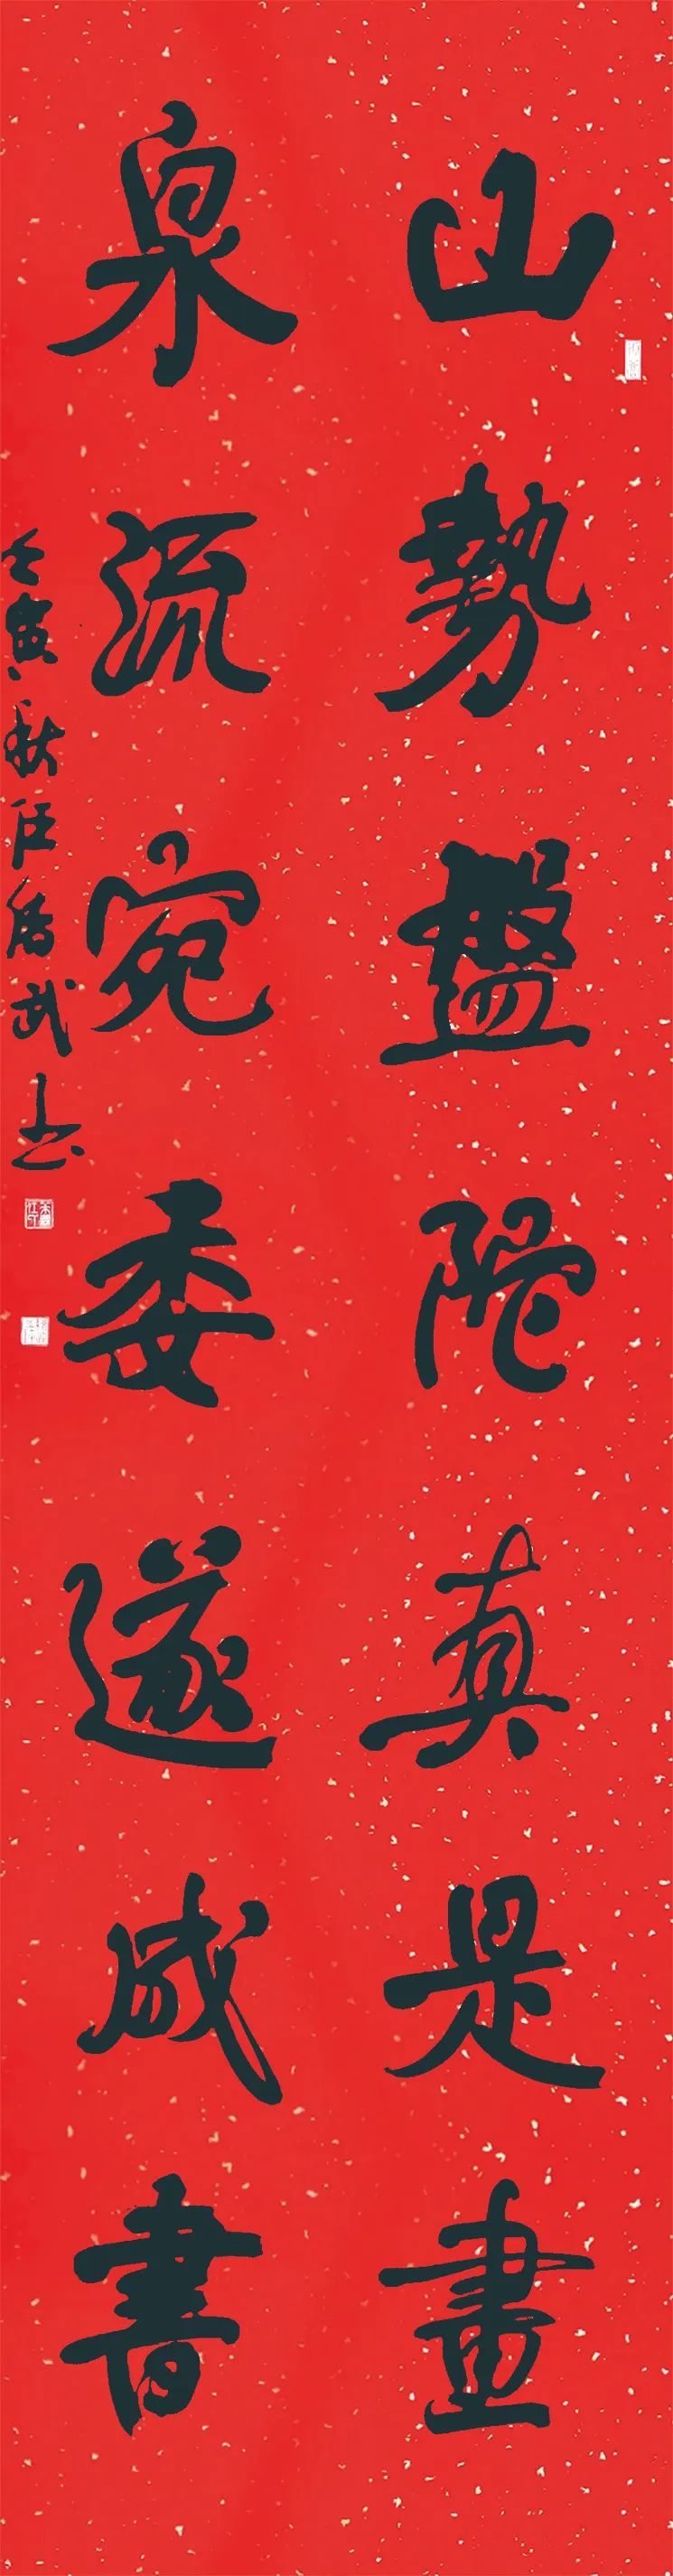 山勢盤陀真是畫
泉流宛委遂成書
壬寅秋汪厚武书